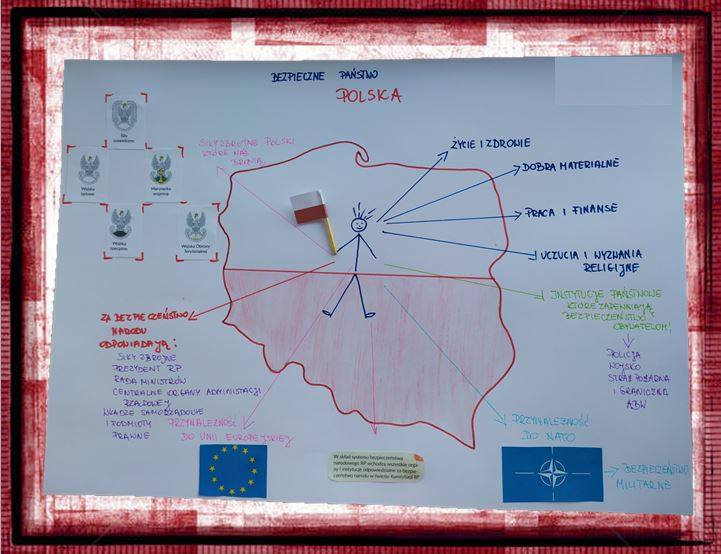 BEZPIECZNE PAŃSTWO
POLSKA
Siły powietrzne
Wojska lądowe
Marynarka wojenna
Wojska specjalne
Wojska Obrony Terytorialnej
SIŁY ZBROJNE POLSKI
KTÓRE NAS
BRONIĄ
ŻYCIE I ZDROWIE
DOBRA MATERIALNE
PRACA I FINANSE
UCZUCIA I WYZNANIA
RELIGIJNE
INSTYTUCJE PAŃSTWOWE
KTÓRE ZAPEWNIAJĄ
BEZPIECZEŃSTWO
OBYWATELOM!
POLICJA
WOJSKO
STRAŻ POŻARNA
I GRANICZNA
ABW
ZA BEZPIECZEŃSTWO
NARODU
ODPOWIADAJĄ:
SIŁY ZBROJNE
PREZYDENT RP
RADA MINISTRÓW
CENTRALNE ORGANY ADMINISTACJI
RZĄDOWEJ
WŁADZE SAMORZĄDOWE
I PODMIOTY
PRAWNE
PRZYNALEŻNOŚĆ
DO UNII EUROPEJSKIEJ
W skład systemu bezpieczeństwa
narodowego RP wchodzą wszystkie orga-
ny i instytucje odpowiedzialne za bezpie-
czeństwo narodu w świetle Konstytucji RP
PRZYNALEŻNOŚĆ
DO NATO
BEZPIECZEŃSTWO
MILITARNE